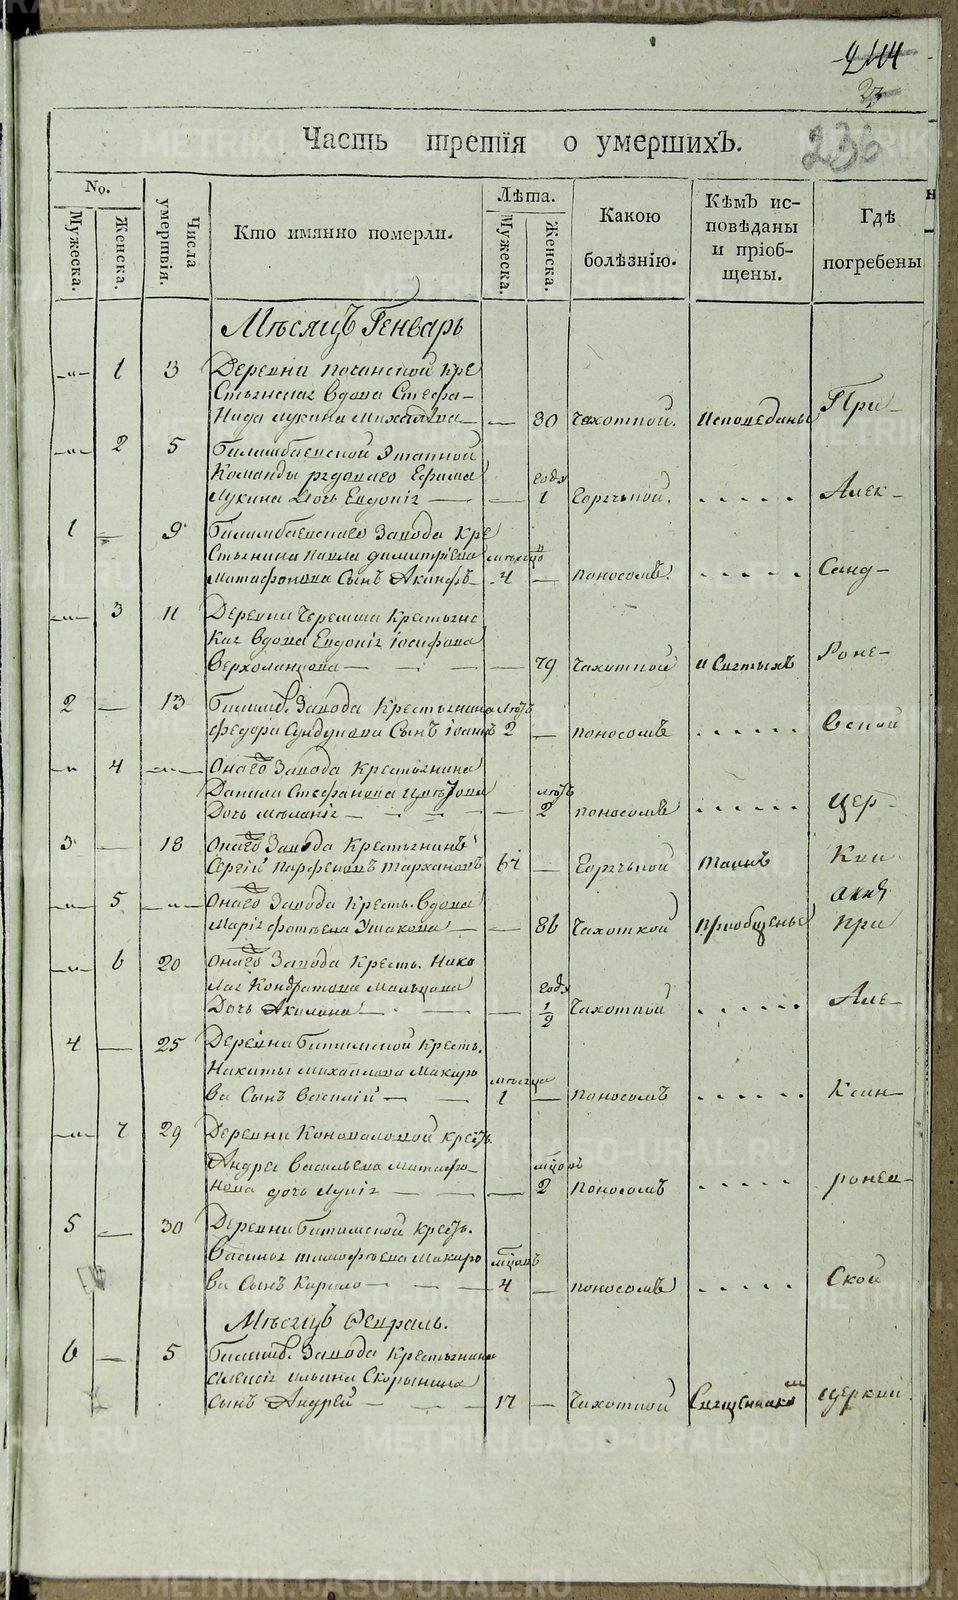 2114
23
236
Часть третія о умершихъ.
No.
Мужеска.
Женска.
Числа умертвія.
Кто имянно померли.
Лѣта.
Мужеска.
Женска.
Какою болѣзнію.
Кѣмъ исповѣданы и пріобщены.
Гдѣ погребены
Мѣсяцъ Генварь
-„- 1 3 Деревни Коченской кре
стьянская вдова Стефа-
нида Лукина — 80 Чахоткой. Исповеданы При-
-„- 2 5 Билимбаевской Этапной
Команды рядоваго Ефима годъ
Лукина дочь Евдокія — — 1 Горячкой. . . . . . Алек-
1 — 9 Билимбаевскаго Завода Кре
стьянина Павла Димитріева мѣсяцъ
Матафонова Сынъ Акинфъ 4 — поносомъ. . . . . . Санд-
-„- 3 11 Деревни Черемши Крестьянс
кая вдова Евдокія Іосифова
Верхоланцова — — — 79 Чахоткой и Святыхъ Роне-
2 — 13 Билимб. Завода Крестьянина
Федора Сундукова Сынъ Іоаннъ 2 — поносомъ . . . . . . вской
-„- 4 -„- Онаго Завода Крестьянина
Данила Стефанова
Дочь Меланія — — — 2 поносомъ . . . . . . цер-
3 — 18 Онаго Завода Крестьянинъ
Сергій Парфеновъ Тархановъ 67 — Горячкой Таинъ Кви
-„- 5 -„- Онаго Завода Кресть. вдова
Марія Фотѣева Ушакова — — 86 Чахоткой Приобщены при
-„- 6 20 Онаго Завода Кресть. Нико
лая Кондратова Мальцова года
Дочь Акилина — — 1/2 Чахоткой . . . . . . Але-
4 — 25 Деревни Битимской Кресть.
Никиты Михайлова Макаро мѣсяца
ва Сынъ Василій — — 1 — поносомъ . . . . . . Ксан-
-„- 7 29 Деревни Коноваловой Кресть.
Андрея Васильева Матафо-
нова дочь — — 2 поносомъ . . . . . ронев-
5 — 30 Деревни Битимской Кресть.
Василья Тимофѣева Макаро
ва Сынъ Кирило — — 4 — поносомъ . . . . . Ской
Мѣсяцъ Февраль.
6 — 5 Билимб. Завода Крестьянина
Алексія Ильина Скорынина
сынъ Андрей — — 17 — Чахоткой Священникомъ церкви
METRIKI.GASO-URAL.RU